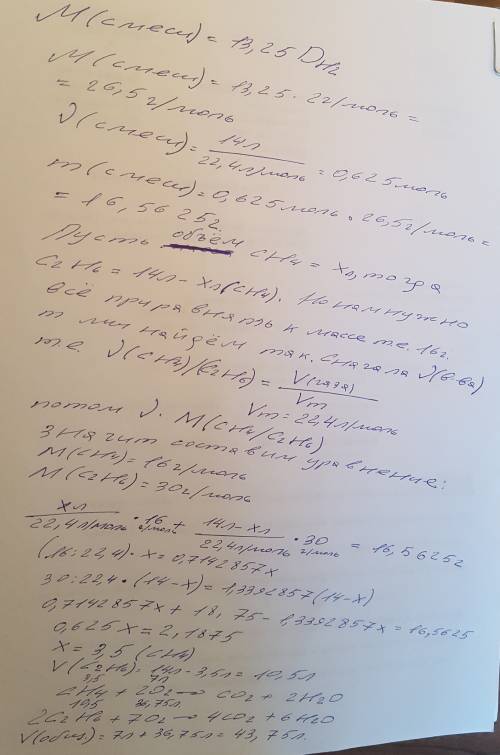 M(смеси) = 13,25 DH2
M(смеси) = 13,25 · 2г/моль =
= 26,5 г/моль
ν(смеси) = 14л / 22,4 л/моль = 0,625 моль
m(смеси) = 0,625 моль · 26,5 г/моль =
= 16,5625г.
Пусть объём CH4 = xл, тогда
C2H6 = 14л - xл(CH4). Но нам нужно
всё приравнять к массе т.е. 16г.
m мы найдём так. Сначала ν(в-ва)
т.е. ν(CH4)/(C2H6) = V(газа) / Vm
Vm = 22,4 л/моль
потом ν · M(CH4/C2H6)
значит составим уравнение:
M(CH4) = 16 г/моль
M(C2H6) = 30 г/моль
xл / 22,4 л/моль · 16 г/моль + 14л - xл / 22,4 л/моль · 30 г/моль = 16,5625г
(16 : 22,4) · x = 0,7142857x
30 : 22,4 · (14 - x) = 1,3392857(14 - x)
0,7142857x + 18,75 - 1,3392857x = 16,5625
0,625x = 2,1875
x = 3,5 (CH4)
V(C2H6) = 14л - 3,5л = 10,5л
3,5 7л
CH4 + 2O2 → CO2 + 2H2O
10,5 36,75л.
2C2H6 + 7O2 → 4CO2 + 6H2O
V(общ.) = 7л + 36,75л = 43,75л.